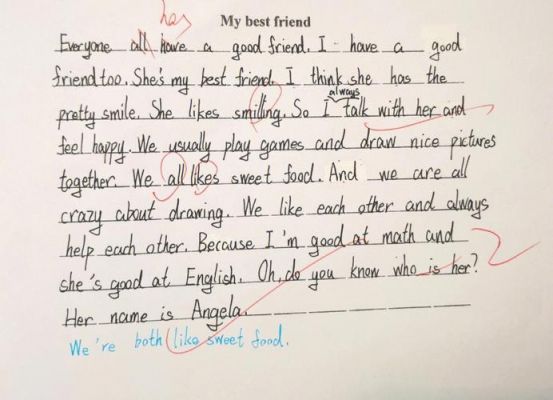 has
My best friend
Everyone all have a good friend. I have a good
friend too. She's my best friend. I think she has the
pretty smile. She likes smilling. So I always talk with her and
feel happy. We usually play games and draw nice pictures
together. We all likes sweet food. And we are all
crazy about drawing. We like each other and always
help each other. Because I'm good at math and
she's good at English. Oh, do you know who is her?
Her name is Angela.
We're both like sweet food.